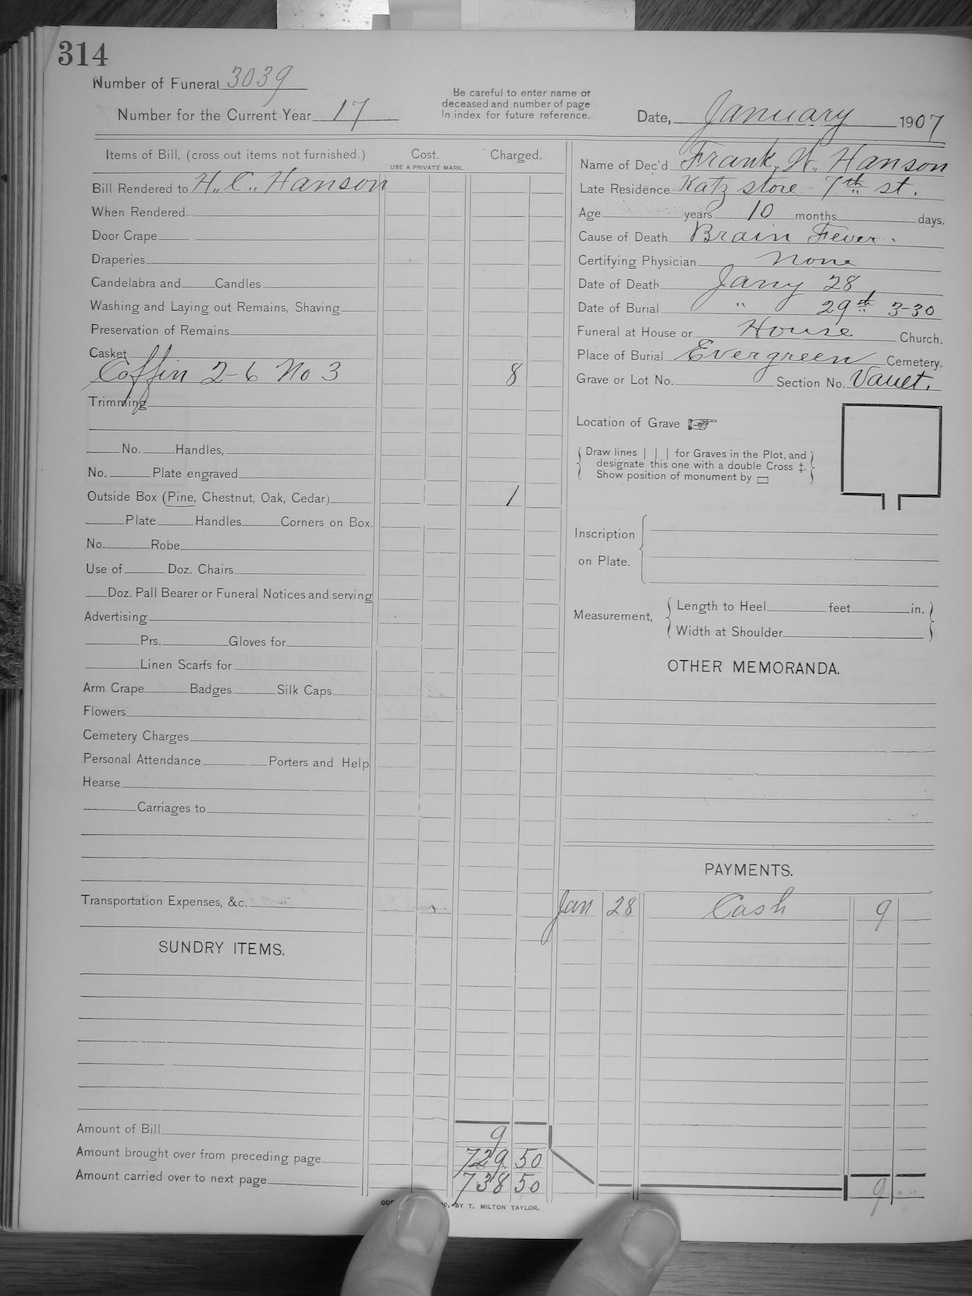 314
Number of Funeral 3039
Number for the Current Year 17
Be careful to enter name of
deceased and number of page
in index for future reference.
Date, January 1907
Items of Bill, (cross out items not furnished.)
Cost.
USE A PRIVATE MARK.
Charged.
Bill Rendered to H. C. Hanson
When Rendered
Door Crape
Draperies
Candelabra and Candles
Washing and Laying out Remains, Shaving
Preservation of Remains
Casket
Coffin 2-6 No 3 8
Trimming
No. Handles,
No. Plate engraved
Outside Box (Pine, Chestnut, Oak, Cedar) 1
Plate Handles Corners on Box.
No. Robe
Use of Doz. Chairs
Doz. Pall Bearer or Funeral Notices and serving
Advertising
Prs. Gloves for
Linen Scarfs for
Arm Crape Badges Silk Caps
Flowers
Cemetery Charges
Personal Attendance Porters and Help
Hearse
Carriages to
Transportation Expenses, &c.
SUNDRY ITEMS.
Amount of Bill 9
Amount brought over from preceding page 729 50
Amount carried over to next page 738 50
Name of Dec'd Frank. W. Hanson
Late Residence Katz store - 7th st.
Age years 10 months days.
Cause of Death Brain Fever.
Certifying Physician None
Date of Death Jany 28
Date of Burial " 29th 3-30
Funeral at House or House Church.
Place of Burial Evergreen Cemetery.
Grave or Lot No. Section No. Vault.
Location of Grave
Draw lines | | | for Graves in the Plot, and
designate this one with a double Cross ‡.
Show position of monument by ▭
Inscription
on Plate.
Measurement,
Length to Heel feet in.
Width at Shoulder
OTHER MEMORANDA.
PAYMENTS.
Jan 28 Cash 9
9
BY T. MILTON TAYLOR.